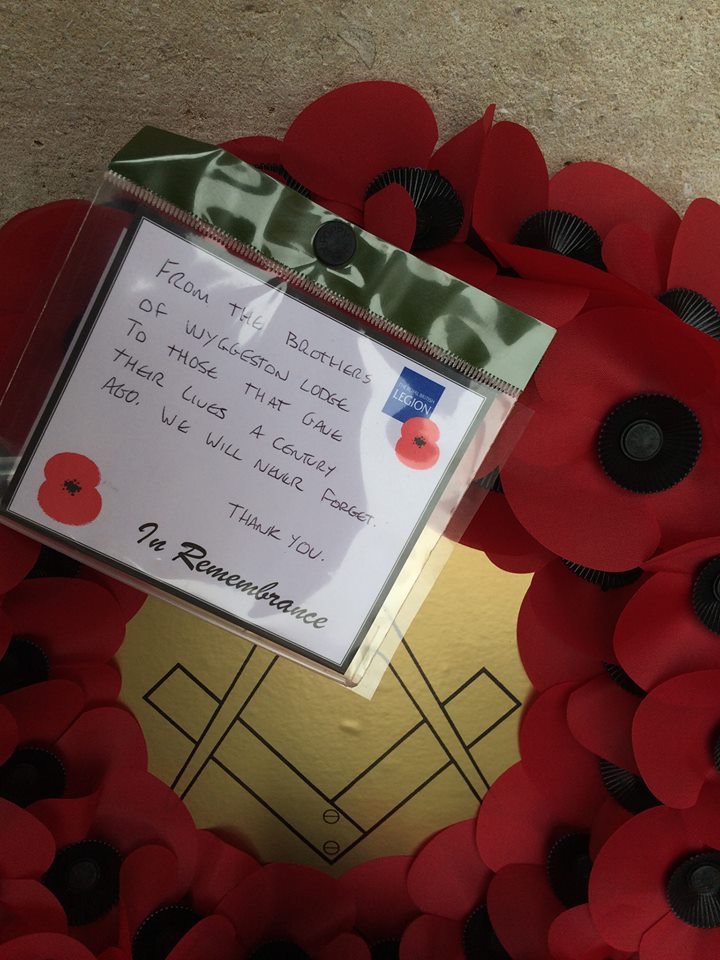 FROM THE BROTHERS
OF WYGGESTON LODGE
TO THOSE THAT GAVE
THEIR LIVES A CENTURY
AGO. WE WILL NEVER FORGET.
THANK YOU.
THE ROYAL BRITISH
LEGION
In Remembrance